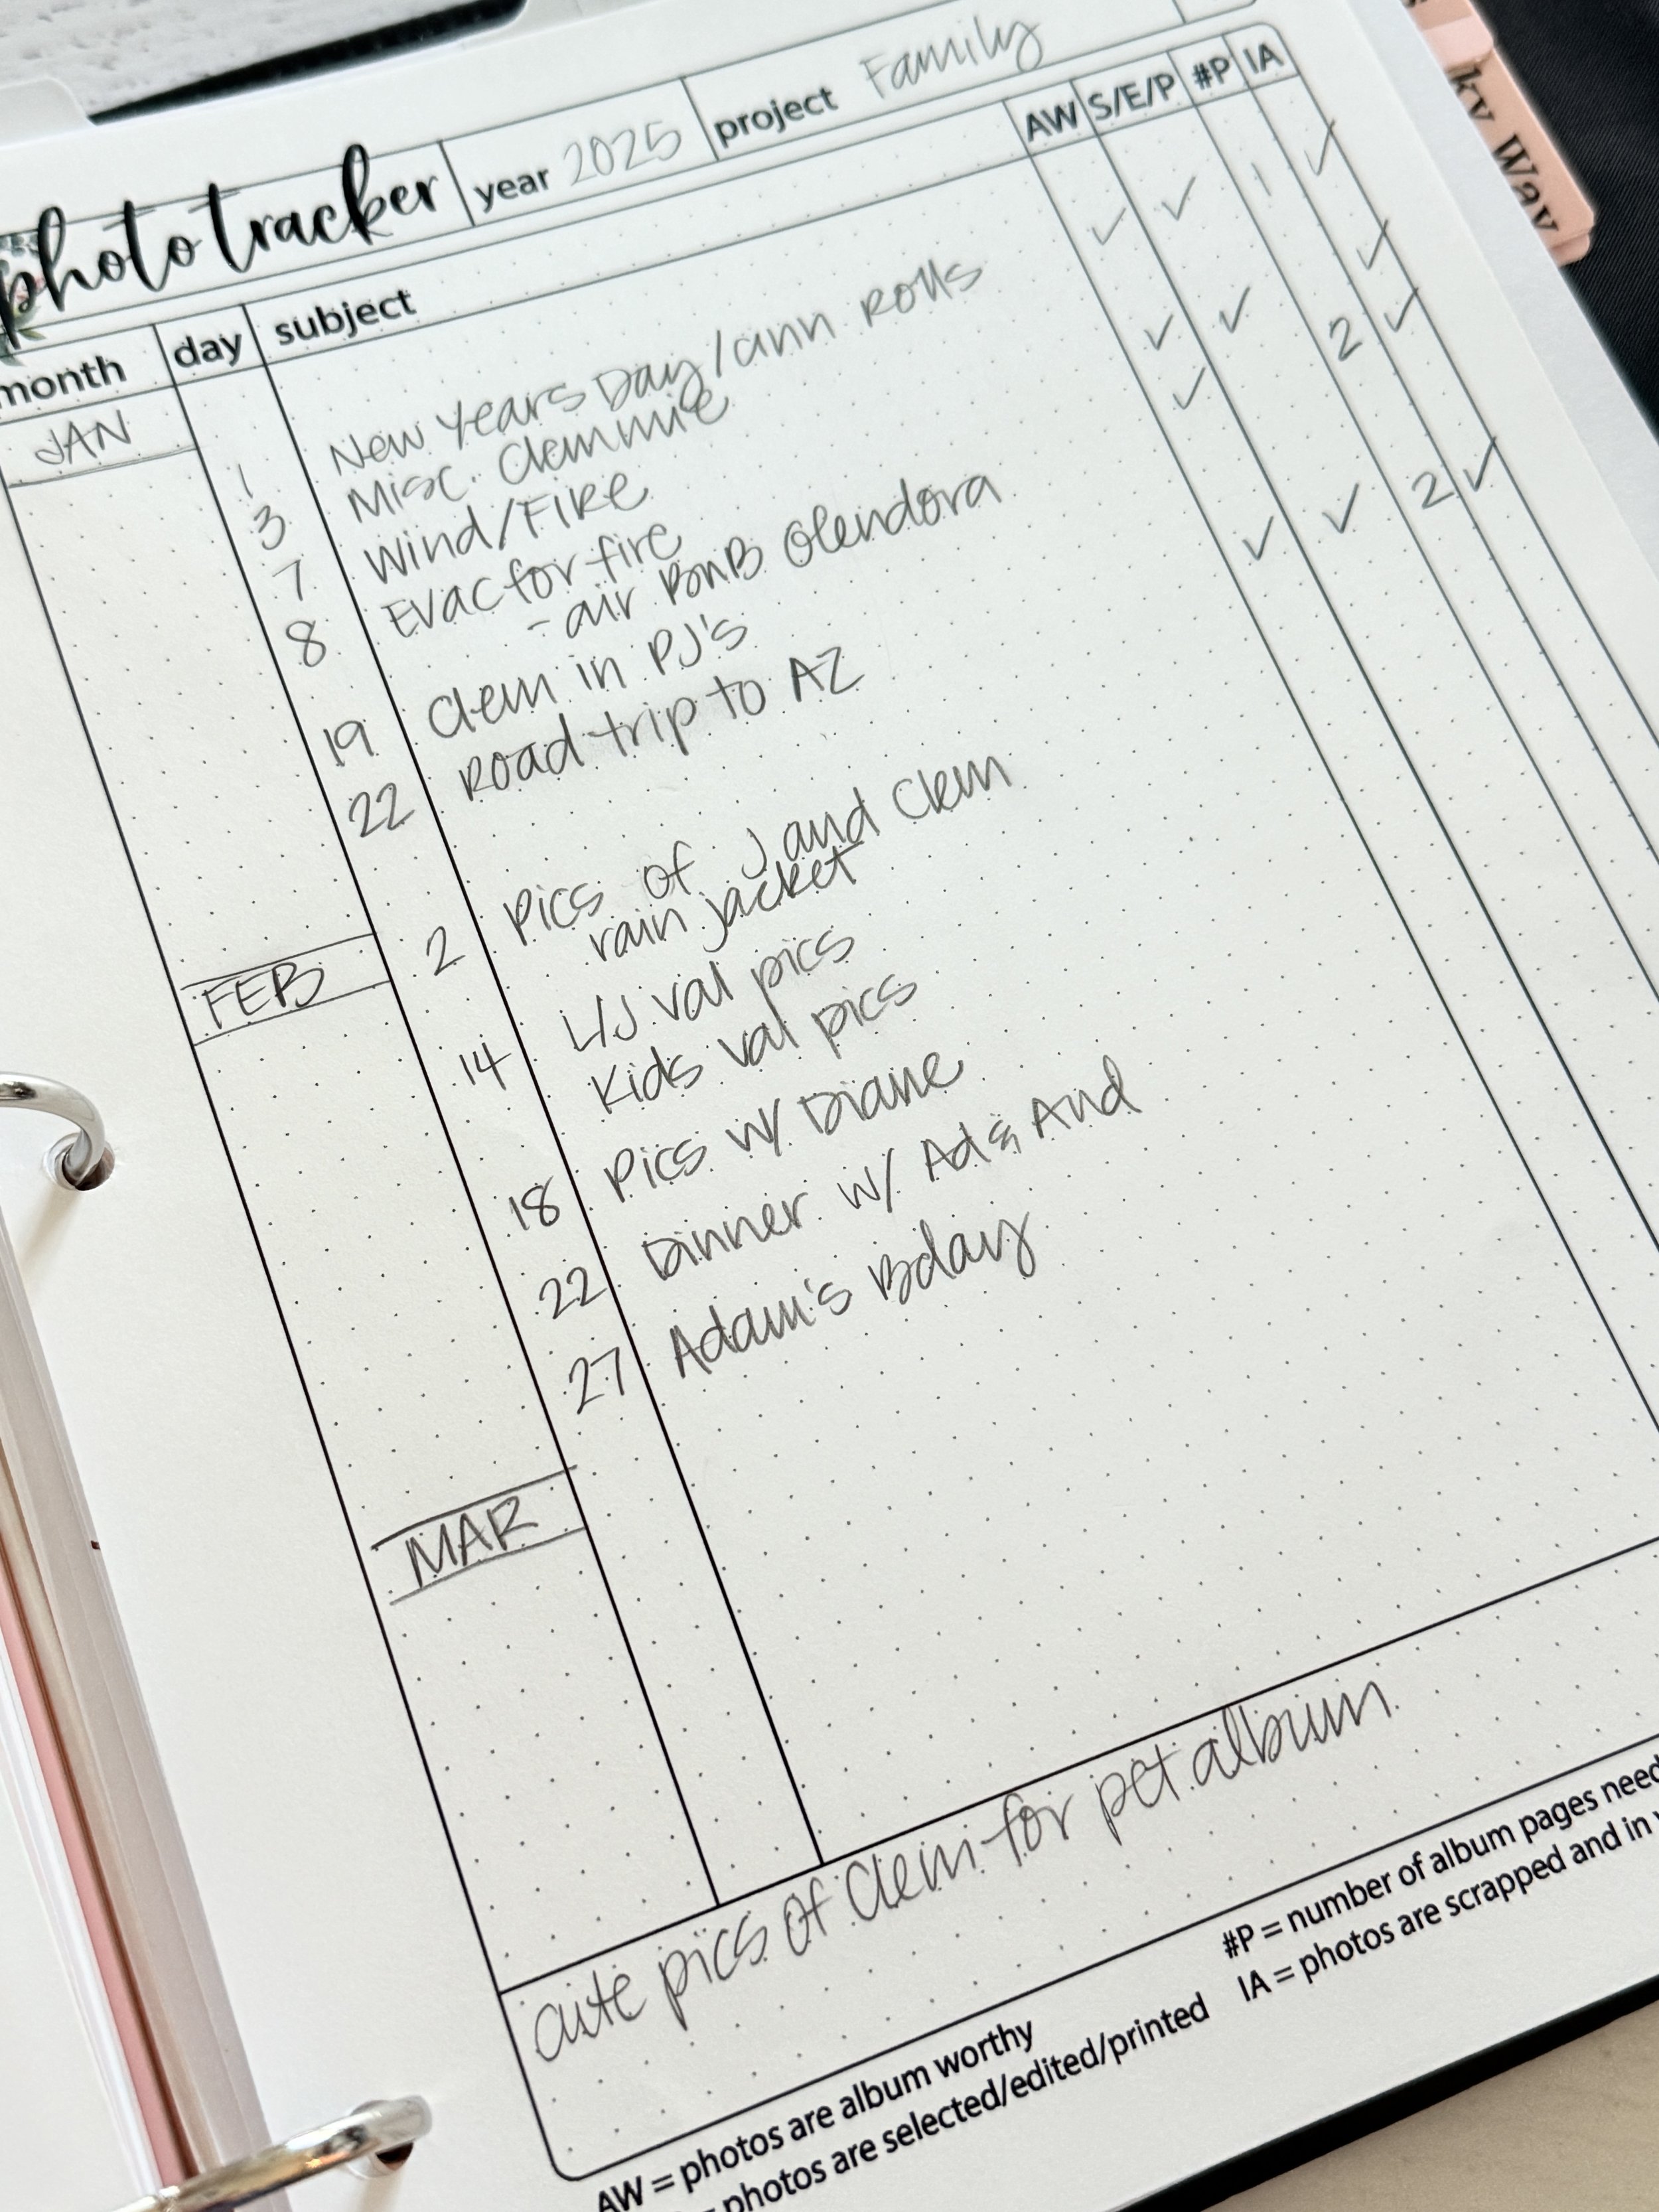 photo tracker year 2025 project Family
month day subject AW S/E/P #P IA
JAN 1 New Years Day/ann Rolls ✓ ✓ 1 ✓
3 Misc. Clemmie ✓
7 Wind/FIRE ✓ ✓ 2 ✓
8 Evac for fire ✓
- air BnB Glendora
19 Clem in PJ's
22 Road trip to AZ ✓ ✓ 2 ✓
FEB 2 Pics of J and Clem
rain jacket
14 L/J val pics
Kids val pics
18 Pics w/ Diane
22 Dinner w/ Ad & And
27 Adam's Bday
MAR
cute pics of Clem for pet album
AW = photos are album worthy
= photos are selected/edited/printed
#P = number of album pages need
IA = photos are scrapped and in
ky Way